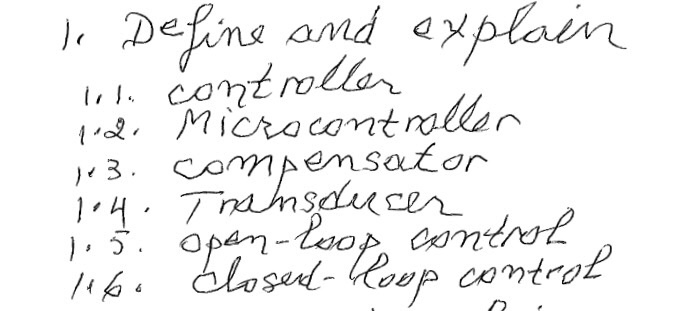 1. Define and explain
1.1. controller
1.2. Microcontroller
1.3. compensator
1.4. Transducer
1.5. open-loop control
1.6. closed-loop control